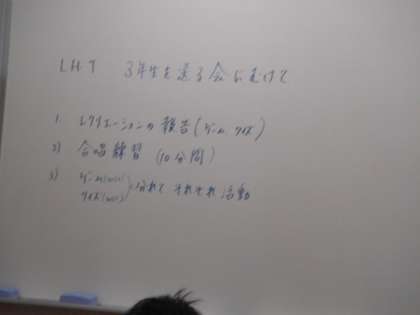 LHT 3年生を送る会に向けて
1. レクリエーションの報告(ゲーム クイズ)
2) 合唱練習 (10分間)
3) ゲーム
クイズ に分れて それぞれ 活動